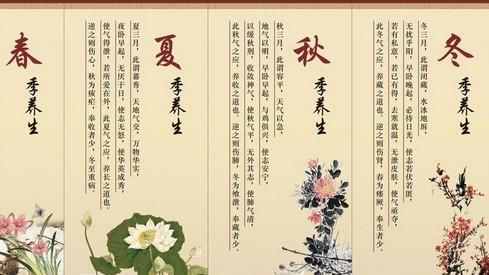 春
季养生
夏
季养生
夏三月，此谓蕃秀，天地气交，万物华实，
夜卧早起，无厌于日，使志无怒，使华英成秀，
使气得泄，若所爱在外，此夏气之应，养长之道也。
逆之则伤心，秋为痎疟，奉收者少，冬至重病。
秋
季养生
秋三月，此谓容平，天气以急，
地气以明，早卧早起，与鸡俱兴，使志安宁，
以缓秋刑，收敛神气，使秋气平，无外其志，使肺气清，
此秋气之应，养收之道也。逆之则伤肺，冬为飧泄，奉藏者少。
冬
季养生
冬三月，此谓闭藏，水冰地坼，
无扰乎阳，早卧晚起，必待日光，使志若伏若匿，
若有私意，若已有得，去寒就温，无泄皮肤，使气亟夺，
此冬气之应，养藏之道也。逆之则伤肾，春为痿厥，奉生者少。